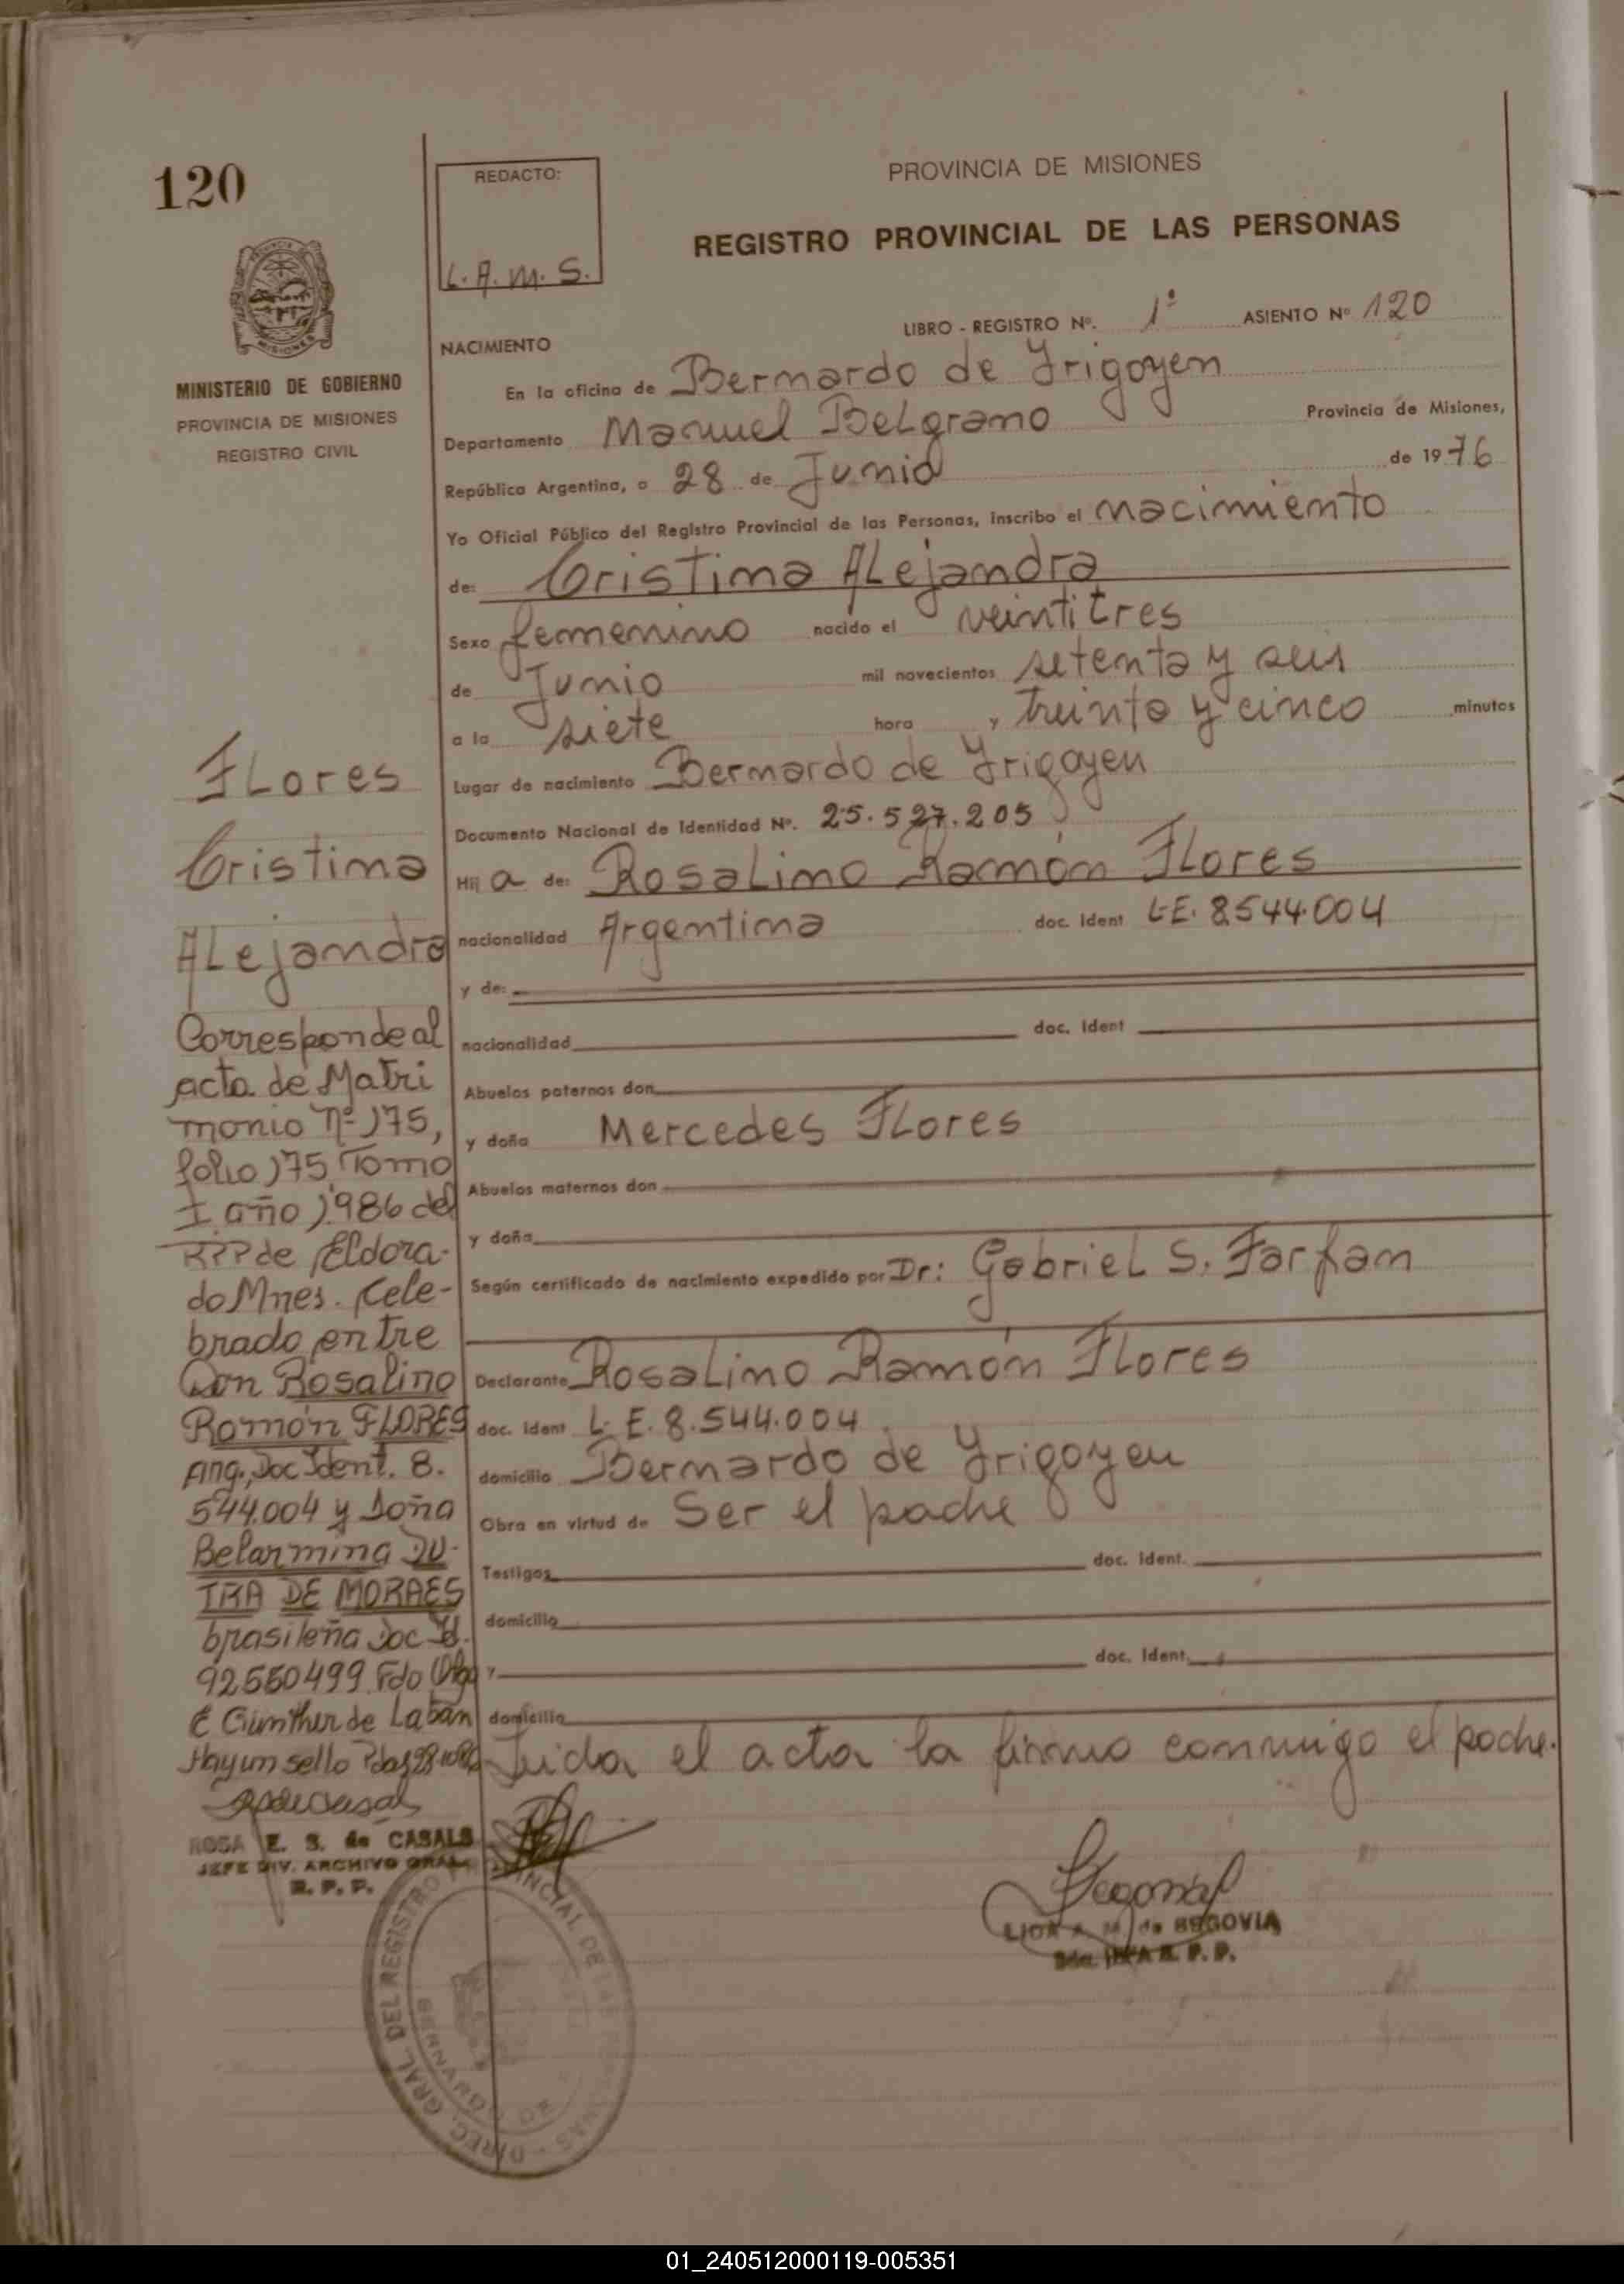 120
REDACTO:
L.A.M.S.
PROVINCIA DE MISIONES
REGISTRO PROVINCIAL DE LAS PERSONAS
MINISTERIO DE GOBIERNO
PROVINCIA DE MISIONES
REGISTRO CIVIL
LIBRO - REGISTRO Nº. 1º ASIENTO Nº 120
NACIMIENTO
En la oficina de Bernardo de Yrigoyen
Departamento Manuel Belgrano Provincia de Misiones,
República Argentina, a 28 de Junio de 1976
Yo Oficial Público del Registro Provincial de las Personas, inscribo el nacimiento
de: Cristina Alejandra
Sexo femenino nacido el veintitres
de Junio mil novecientos setenta y seis
a la siete hora y treinta y cinco minutos
Lugar de nacimiento Bernardo de Yrigoyen
Documento Nacional de Identidad Nº. 25.527.205
Hija de: Rosalino Ramón Flores
nacionalidad Argentina doc. Ident L.E. 8.544.004
y de:
nacionalidad doc. Ident
Abuelos paternos don
y doña Mercedes Flores
Abuelos maternos don
y doña
Según certificado de nacimiento expedido por Dr: Gabriel S. Farfan
Declarante Rosalino Ramón Flores
doc. Ident L.E. 8.544.004
domicilio Bernardo de Yrigoyen
Obra en virtud de Ser el padre
Testigos doc. Ident.
domicilio
y doc. Ident.
domicilio
Leida el acta la firma conmigo el padre.
Flores
Cristina
Alejandra
Corresponde al
acta de Matri
monio Nº 175,
folio 175, Tomo
I año 1986 del
RPP de Eldora-
do Mnes. Cele-
brado entre
Don Rosalino
Ramón FLORES
Arg. Doc Ident. 8.
544.004 y Doña
Belarmina DU-
TRA DE MORAES
brasileña Doc Id.
92550499 Fdo Olga
E Günther de Laban
Hay un sello Pdas
ROSA E. S. de CASALS
JEFE DIV. ARCHIVO GRAL.
R. P. P.
de SEGOVIA
R. P. P.
DIREC. GRAL. DEL REGISTRO PROVINCIAL DE LAS PERSONAS
BERNARDO DE
01_240512000119-005351